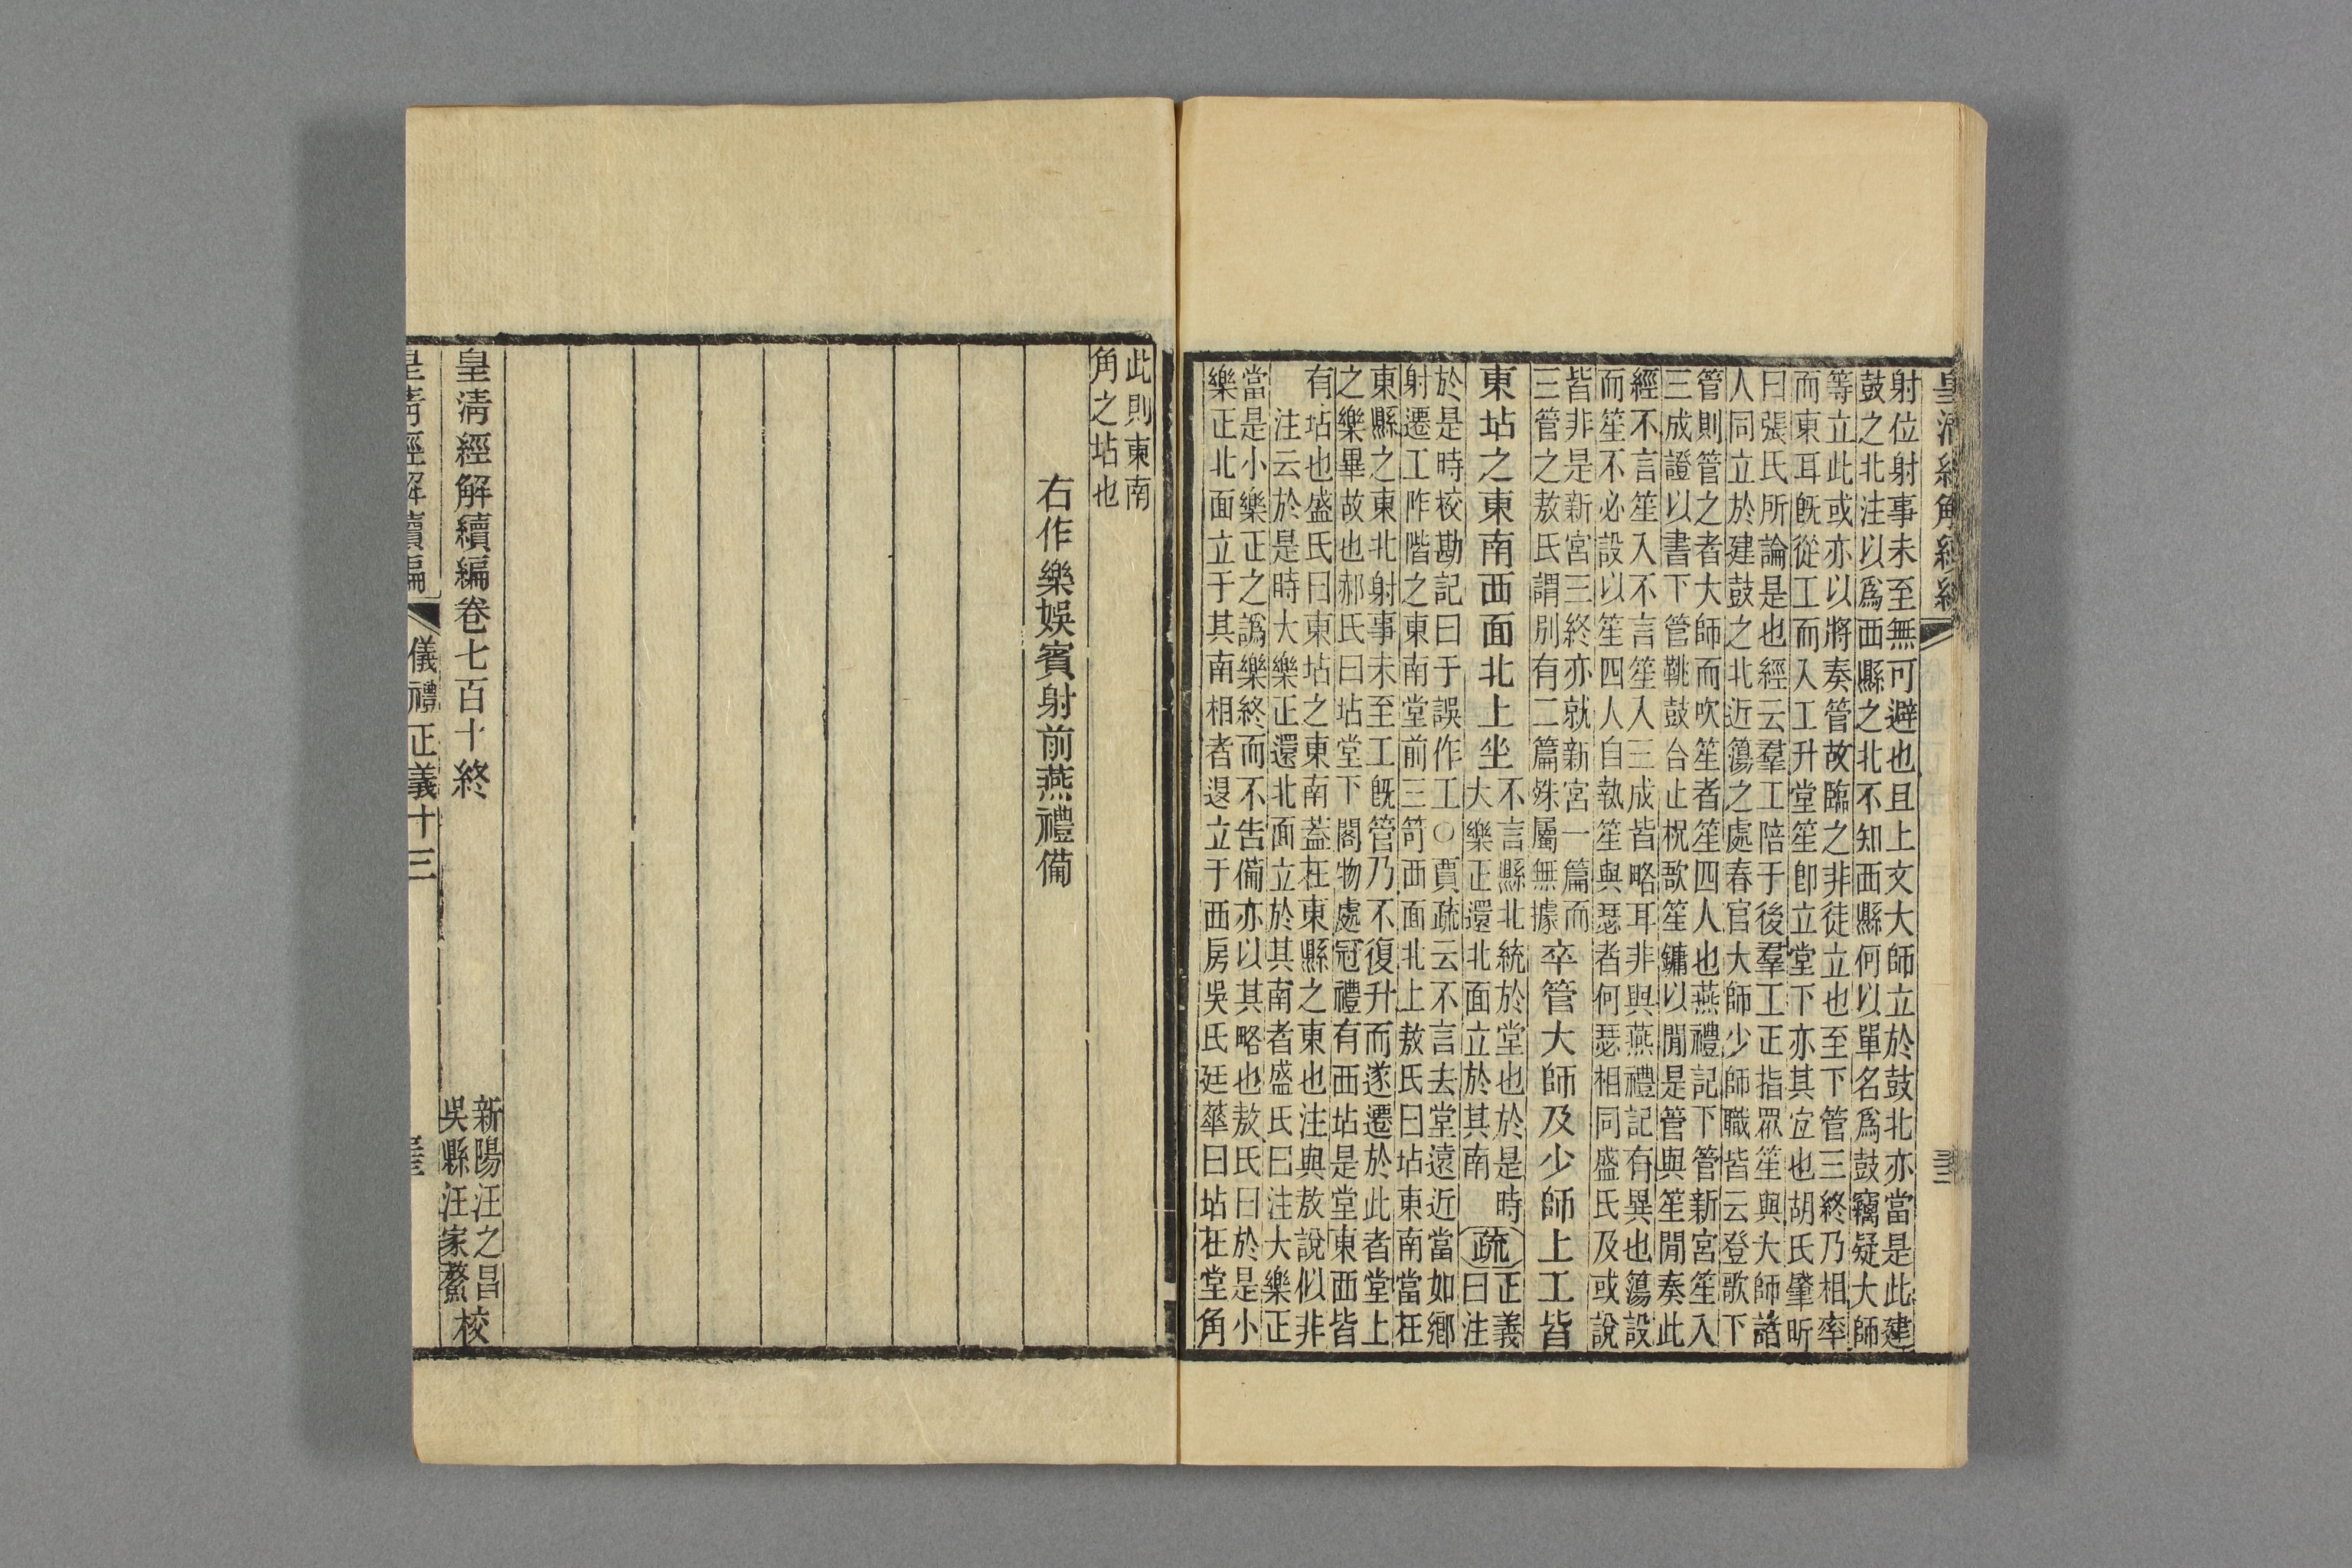 射位射事未至無可避也且上文大師立於鼓北亦當是此建
鼓之北注以爲西縣之北不知西縣何以單名爲鼓竊疑大師
等立此或亦以將奏管故臨之非徒立也至下管三終乃相率
而東耳旣從工而入工升堂笙卽立堂下亦其宜也胡氏肇昕
曰張氏所論是也經云羣工陪于後羣工正指眾笙與大師諸
人同立於建鼓之北近簜之處春官大師少師職皆云登歌下
管則管之者大師而吹笙者笙四人也燕禮記下管新宮笙入
三成證以書下管鞉鼓合止柷敔笙鏞以閒是管與笙閒奏此
經不言笙入不言笙入三成皆略耳非與燕禮記有異也簜設
而笙不必設以笙四人自執笙與瑟者何瑟相同盛氏及或說
皆非是新宮三終亦就新宮一篇而
三管之敖氏謂別有二篇殊屬無據
卒管大師及少師上工皆
東坫之東南西面北上坐
不言縣北統於堂也於是時
大樂正還北面立於其南
疏
正義
曰注
於是時校勘記曰于誤作工○賈疏云不言去堂遠近當如鄉
射遷工阼階之東南堂前三笴西面北上敖氏曰坫東南當在
東縣之東北射事未至工旣管乃不復升而遂遷於此者堂上
之樂畢故也郝氏曰坫堂下閣物處冠禮有西坫是堂東西皆
有坫也盛氏曰東坫之東南蓋在東縣之東也注與敖說似非
注云於是時大樂正還北面立於其南者盛氏曰注大樂正
當是小樂正之譌樂終而不告備亦以其略也敖氏曰於是小
樂正北面立于其南相者退立于西房吳氏廷華曰坫在堂角
此則東南
角之坫也
右作樂娛賓射前燕禮備
皇淸經解續編卷七百十終
新陽汪之昌
吳縣汪家鰲
校
皇淸經解續編
儀禮正義十三